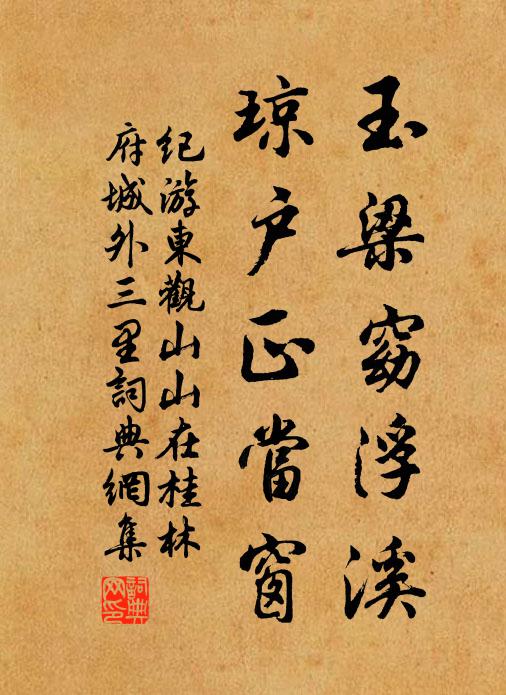 玉梁窈浮溪
琼户正當窗
纪游東觀山山在桂林
府城外三里詞典網集
詞典网印